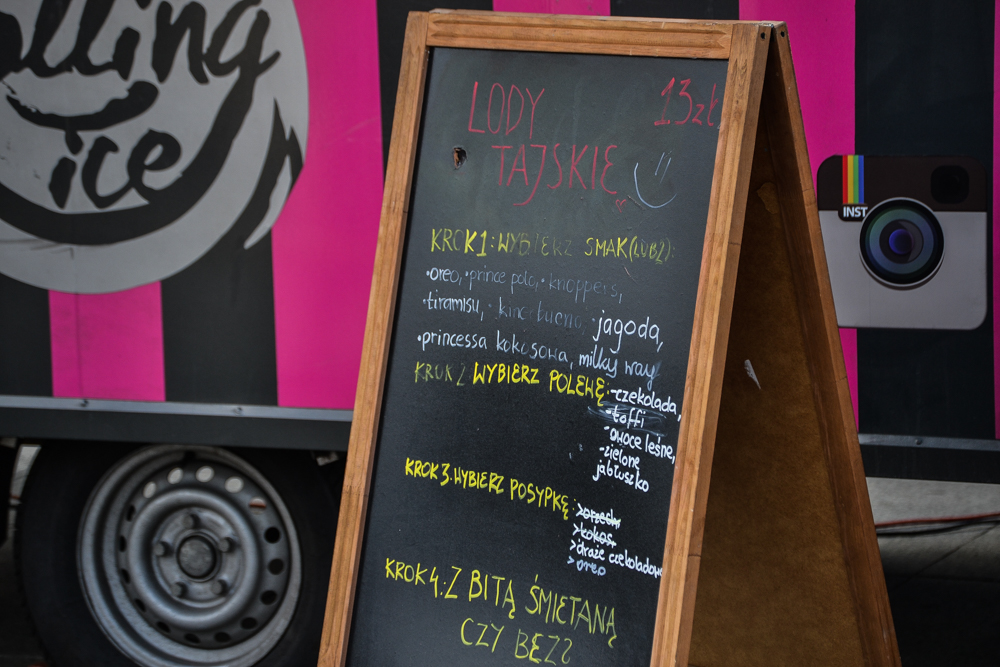 lling
ice
INST
LODY 13zł
TAJSKIĘ
KROK1:WYBIERZ SMAK(LUB2):
•oreo,•prince polo,•knoppers,
•tiramisu,•kinder bueno, •jagoda,
•princessa kokosowa, milky way
KROK 2 WYBIERZ POLEWĘ:-czekolada,
-toffi
-owoce leśne,
-zielone
jabłuszko
KROK 3.WYBIERZ POSYPKĘ:>orzechy
>kokos
>draże czekoladowe
>oreo
KROK4:Z BITĄ ŚMIETANĄ
CZY BEZ?